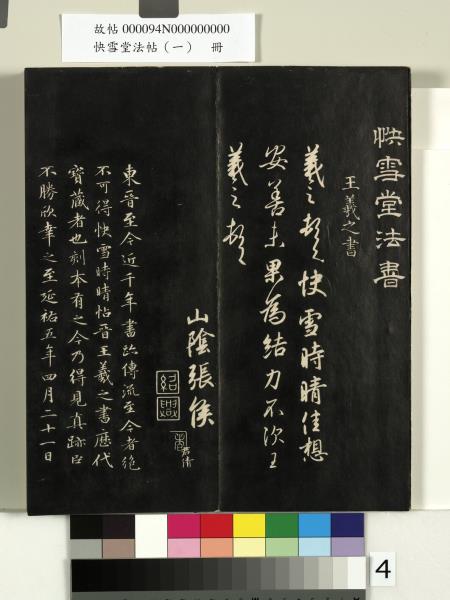 故帖 000094N000000000
快雪堂法帖（一） 冊
快雪堂法書
王羲之書
羲之頓首快雪時晴佳想
安善未果為結力不次王
羲之頓首
山陰張侯
紹興
君倩
東晉至今近千年書跡傳流至今者絶
不可得快雪時晴帖晉王羲之書歷代
寶藏者也刻本有之今乃得見真跡臣
不勝欣幸之至延祐五年四月二十一日
4